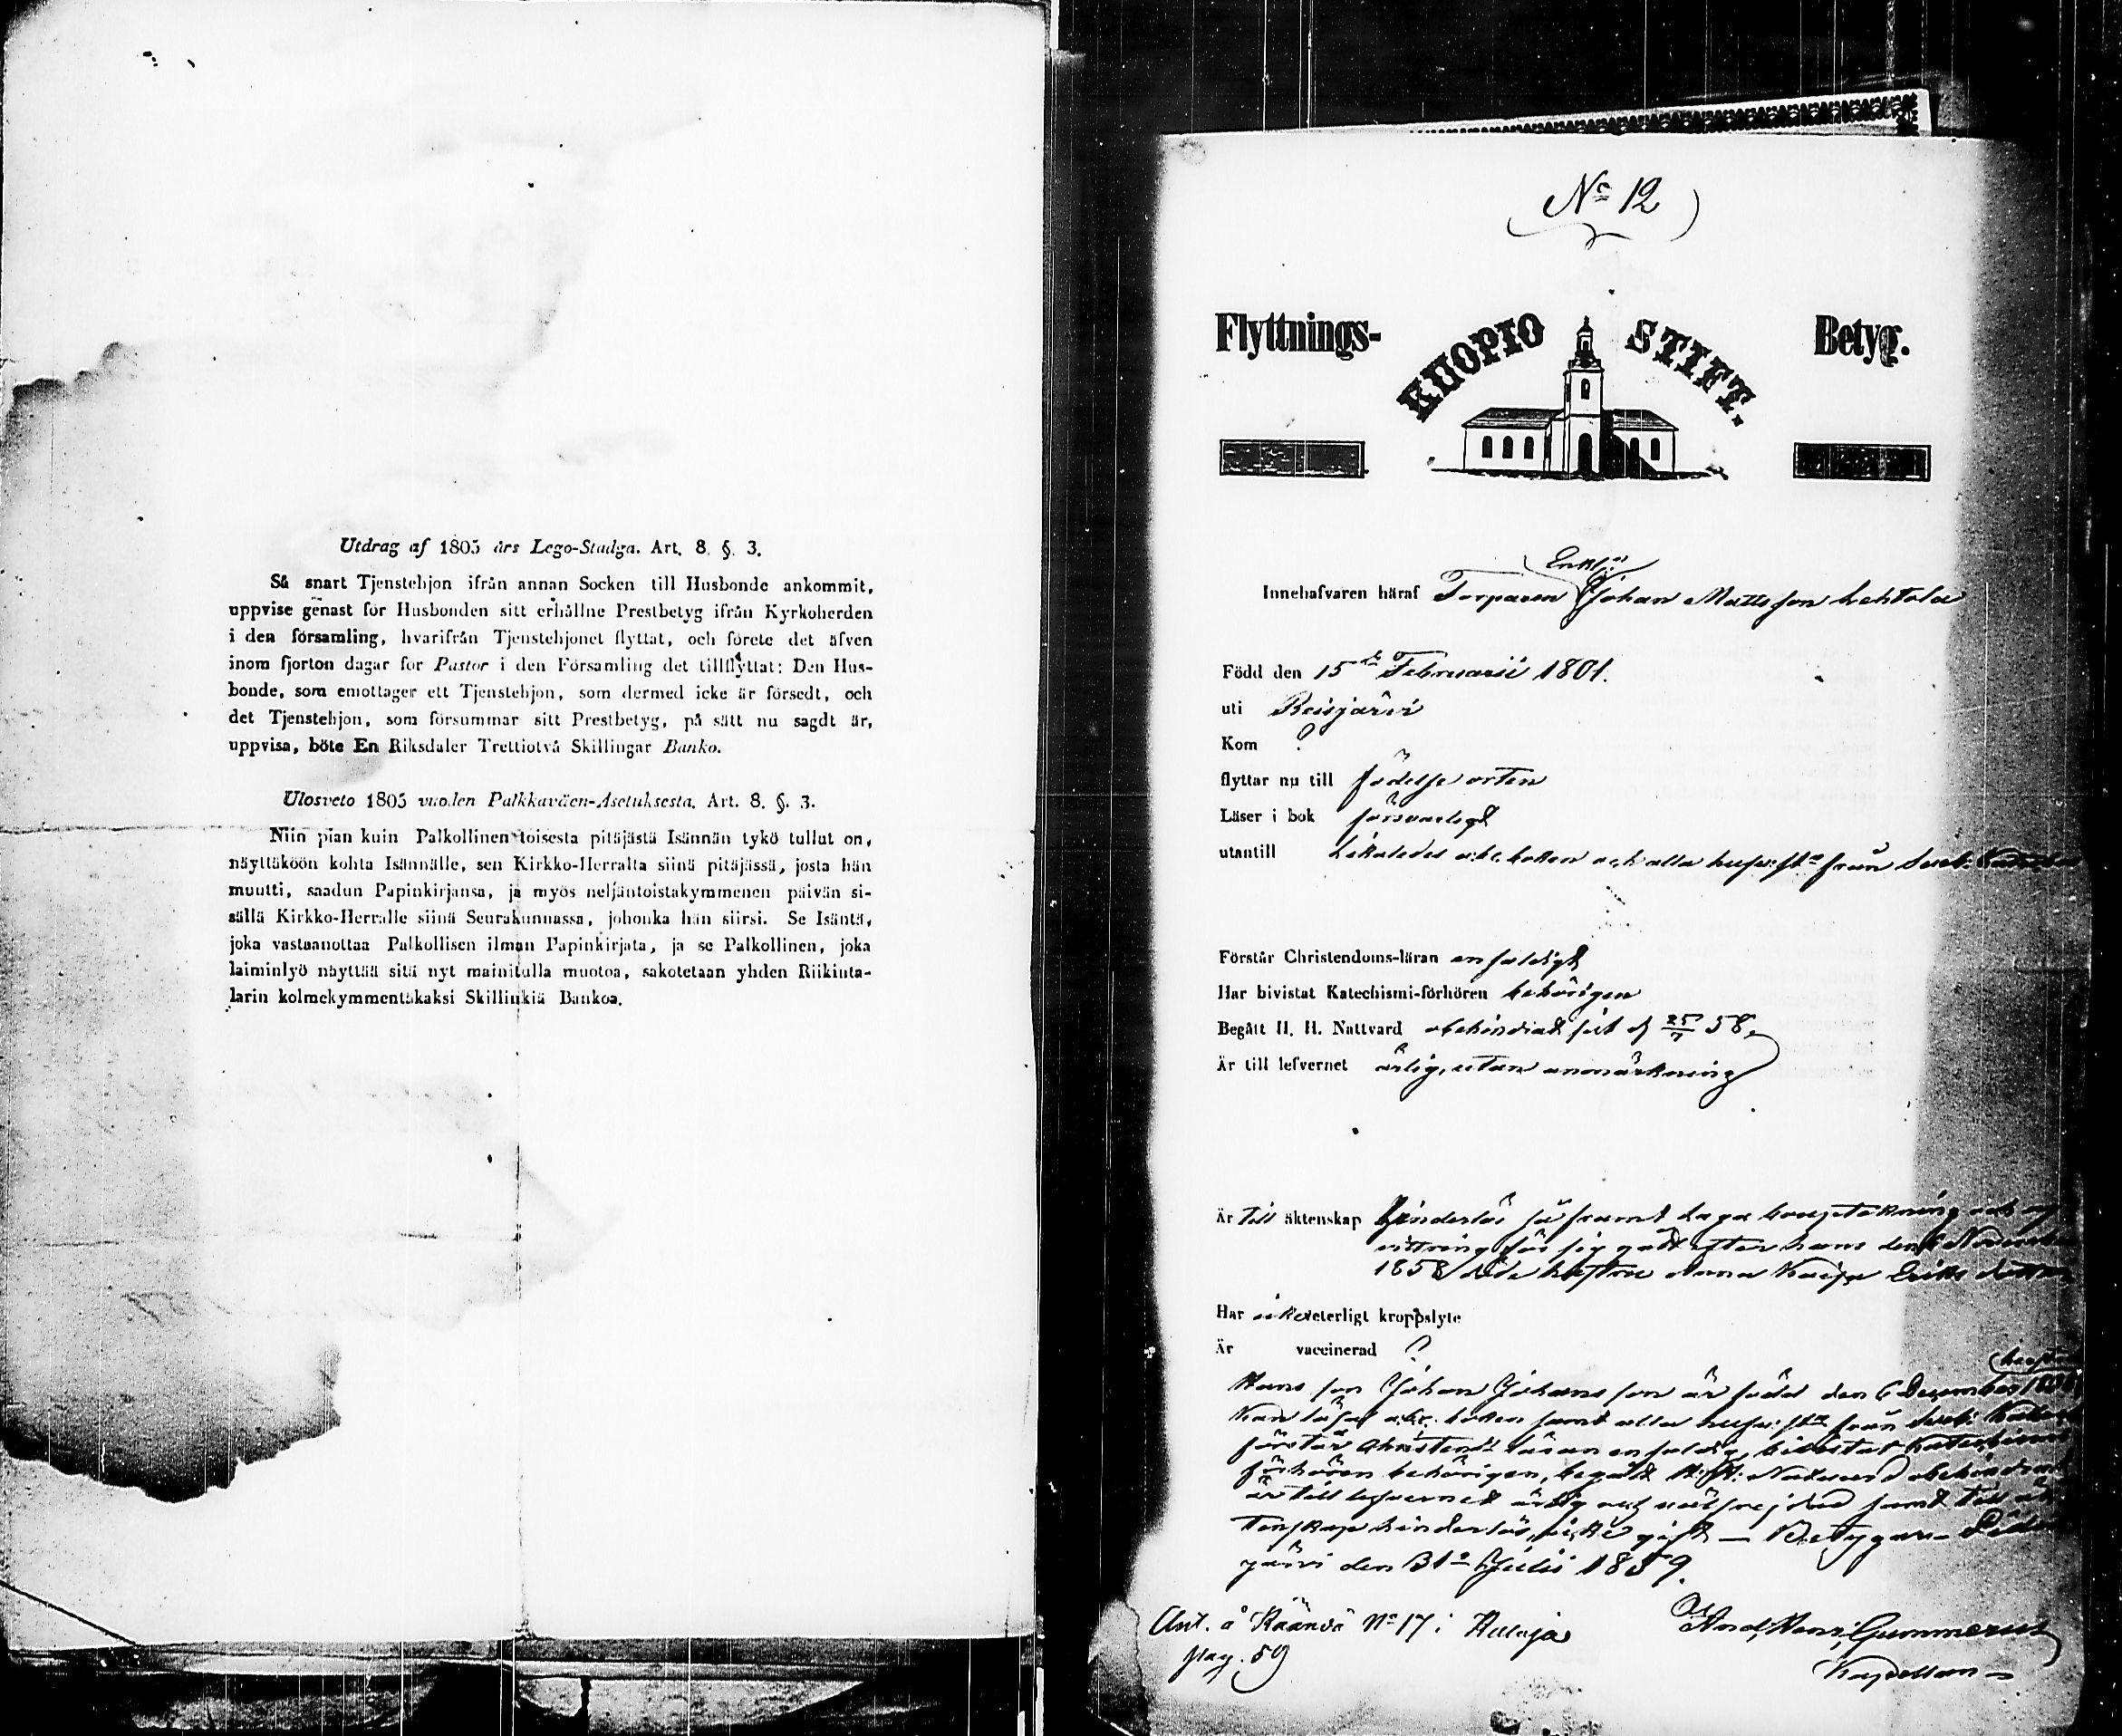 Utdrag af 1805 års Lego-Stadga. Art. 8. §. 3.
Så snart Tjenstehjon ifrån annan Socken till Husbonde ankommit,
uppvise genast för Husbonden sitt erhållne Prestbetyg ifrån Kyrkoherden
i den församling, hvarifrån Tjenstehjonet flyttat, och förete det äfven
inom fjorton dagar för Pastor i den Församling det tillflyttat: Den Hus-
bonde, som emottager ett Tjenstehjon, som dermed icke är försedt, och
det Tjenstehjon, som försummar sitt Prestbetyg, på sätt nu sagdt är,
uppvisa, böte En Riksdaler Trettiotvå Skillingar Banko.
Ulosveto 1805 vuoden Palkkaväen-Asetuksesta. Art. 8. §. 3.
Niin pian kuin Palkollinen toisesta pitäjästä Isännän tykö tullut on,
näyttäköön kohta Isännälle, sen Kirkko-Herralta siinä pitäjässä, josta hän
muutti, saadun Papinkirjansa, ja myös neljäntoistakymmenen päivän si-
sällä Kirkko-Herralle siinä Seurakunnassa, johonka hän siirsi. Se Isäntä,
joka vastaanottaa Palkollisen ilman Papinkirjata, ja se Palkollinen, joka
laiminlyö näyttää sitä nyt mainitulla muotoa, sakotetaan yhden Riikinta-
larin kolmekymmentäkaksi Skillinkiä Bankoa.
No 12
Flyttnings- KUOPIO STIFT. Betyg.
Enkl:n
Innehafvaren häraf Torparen Johan Mattsson Lehtola
Född den 15de Februarii 1801.
uti Reisjärvi
Kom ?
flyttar nu till födelse orten
Läser i bok försvarligt
utantill Likaledes abc boken och alla hufv: st:n från Sveb:
Förstår Christendoms-läran enfaldigt
Har bivistat Katechismi-förhören behörigen
Begått H. H. Nattvard obehindradt sist d 25/7 58.
Är till lefvernet ärlig, utan anmärkning
Är till äktenskap hinderlös så framt laga bouptekning och
vittring för sig gått efter hans den 6 November
1858 döda hustru Anna Kaisa Eriks dotter
Har icke veterligt kroppslyte
Är vaccinerad ?
Hans son Johan Johansson är född den 6 December
Kan läsa abc boken samt alla hufv: st:n från Sveb:
förstår Christend: läran enfaldig, bivistat Katechismi
förhören behörigen, begått H: H: Nattvard obehindradt
är till lefvernet ärlig och välfrejdad samt till äk-
tenskap hinderlös, icke gift — Betygar
järvi den 31 Julii 1859.
And. Henr. Gummerus
Kapellan
Ant. å Räänä No 17 i Kalaja
pag. 59